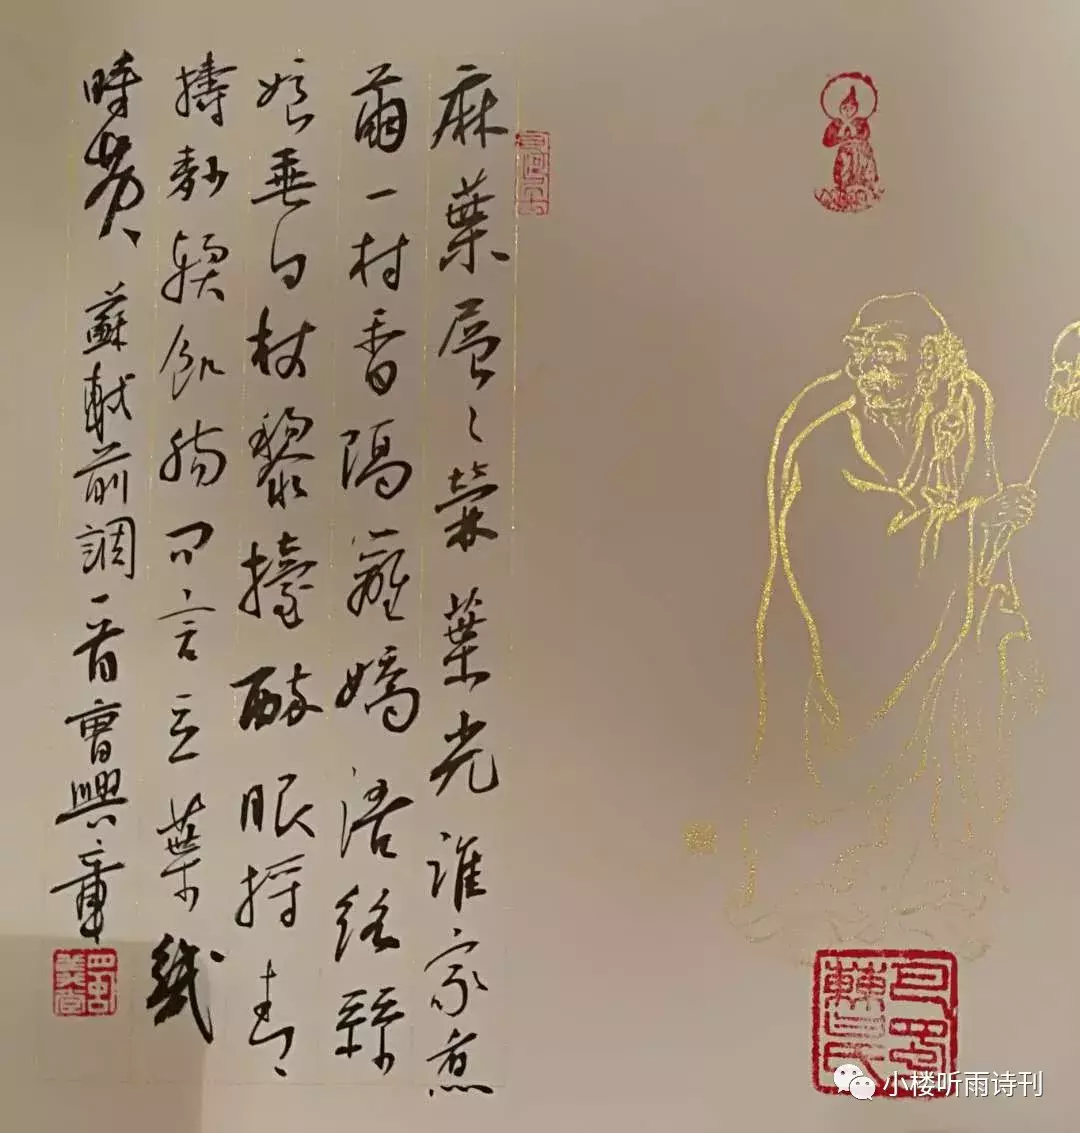 麻葉層〻檾葉光誰家煮
繭一村香隔籬嬌語絡絲
娘垂白杖黎擡醉眼捋青
擣麨輭飢腸問言豆葉幾
時黃 蘇軾前調一首曹興章
小楼听雨诗刊